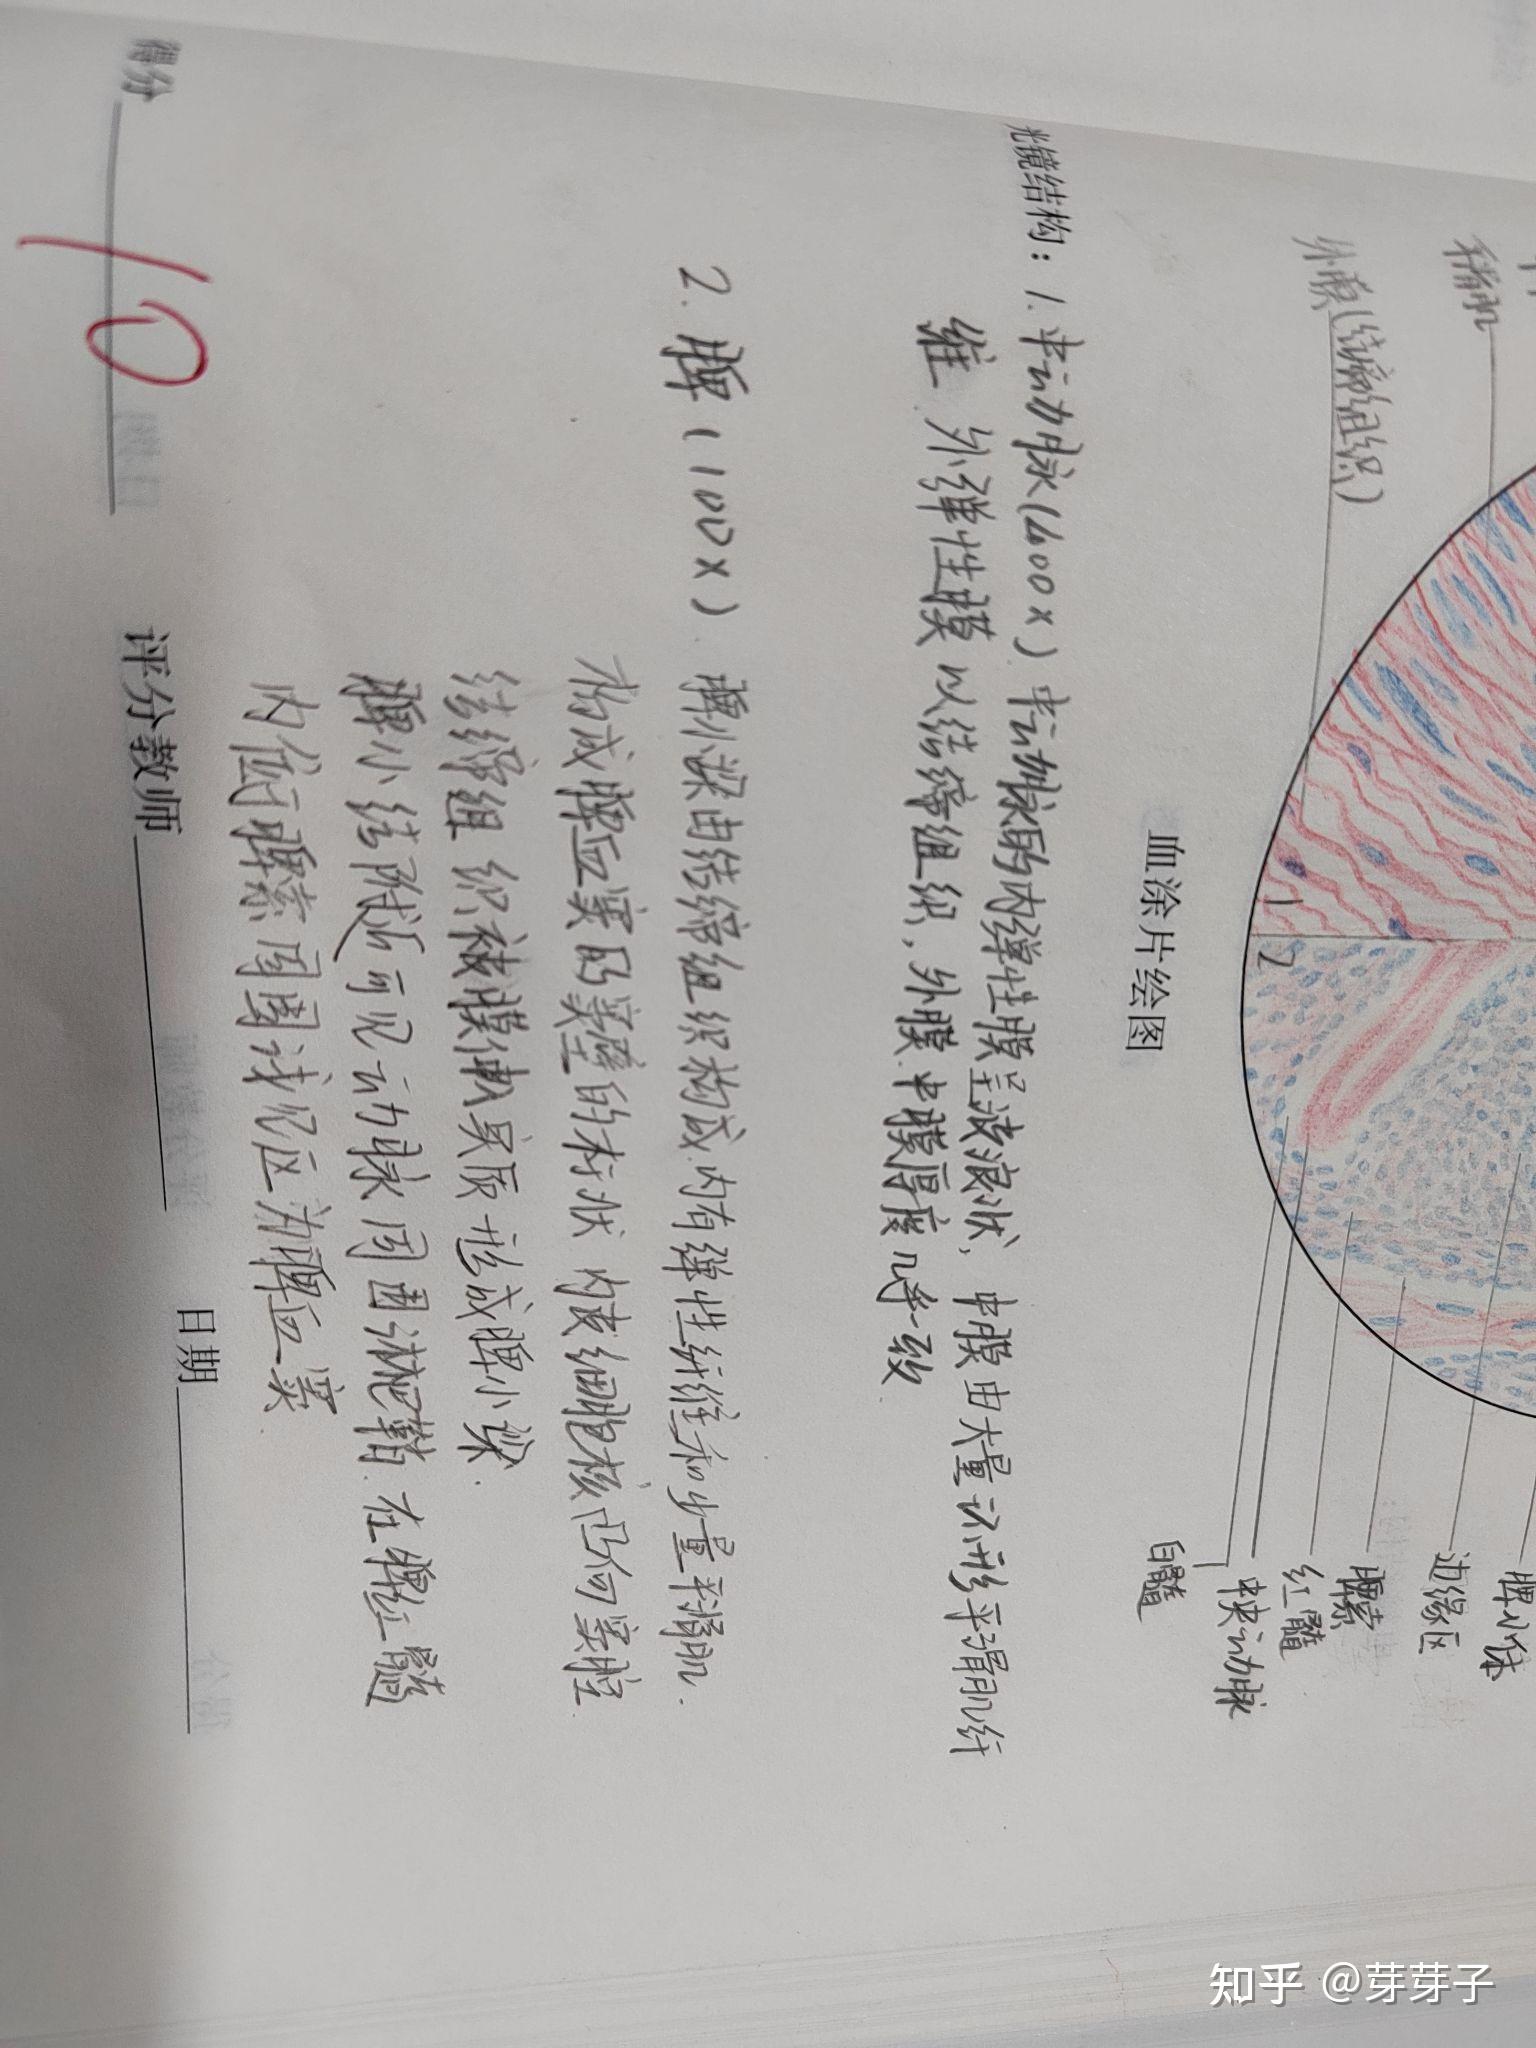 稍肌
外膜(结缔组织)
1
2
脾小体
边缘区
脾索
红髓
中央动脉
白髓
血涂片绘图
光镜结构：1.中动脉(400×).中动脉的内弹性膜呈波浪状，中膜由大量环形平滑肌纤
维 外弹性膜以结缔组织，外膜.中膜厚度几乎一致.
2.脾(100×).脾小梁由结缔组织构成.内有弹性纤维和少量平滑肌.
构成脾血窦的窦壁的杆状 内皮细胞核凸向窦腔
结缔组织被膜伸入实质形成脾小梁.
脾小结附近可见动脉周围淋巴鞘.在脾红髓
内位于脾索周围浅色区为脾血窦
得分 10 评分教师 日期
知乎 @芽芽子